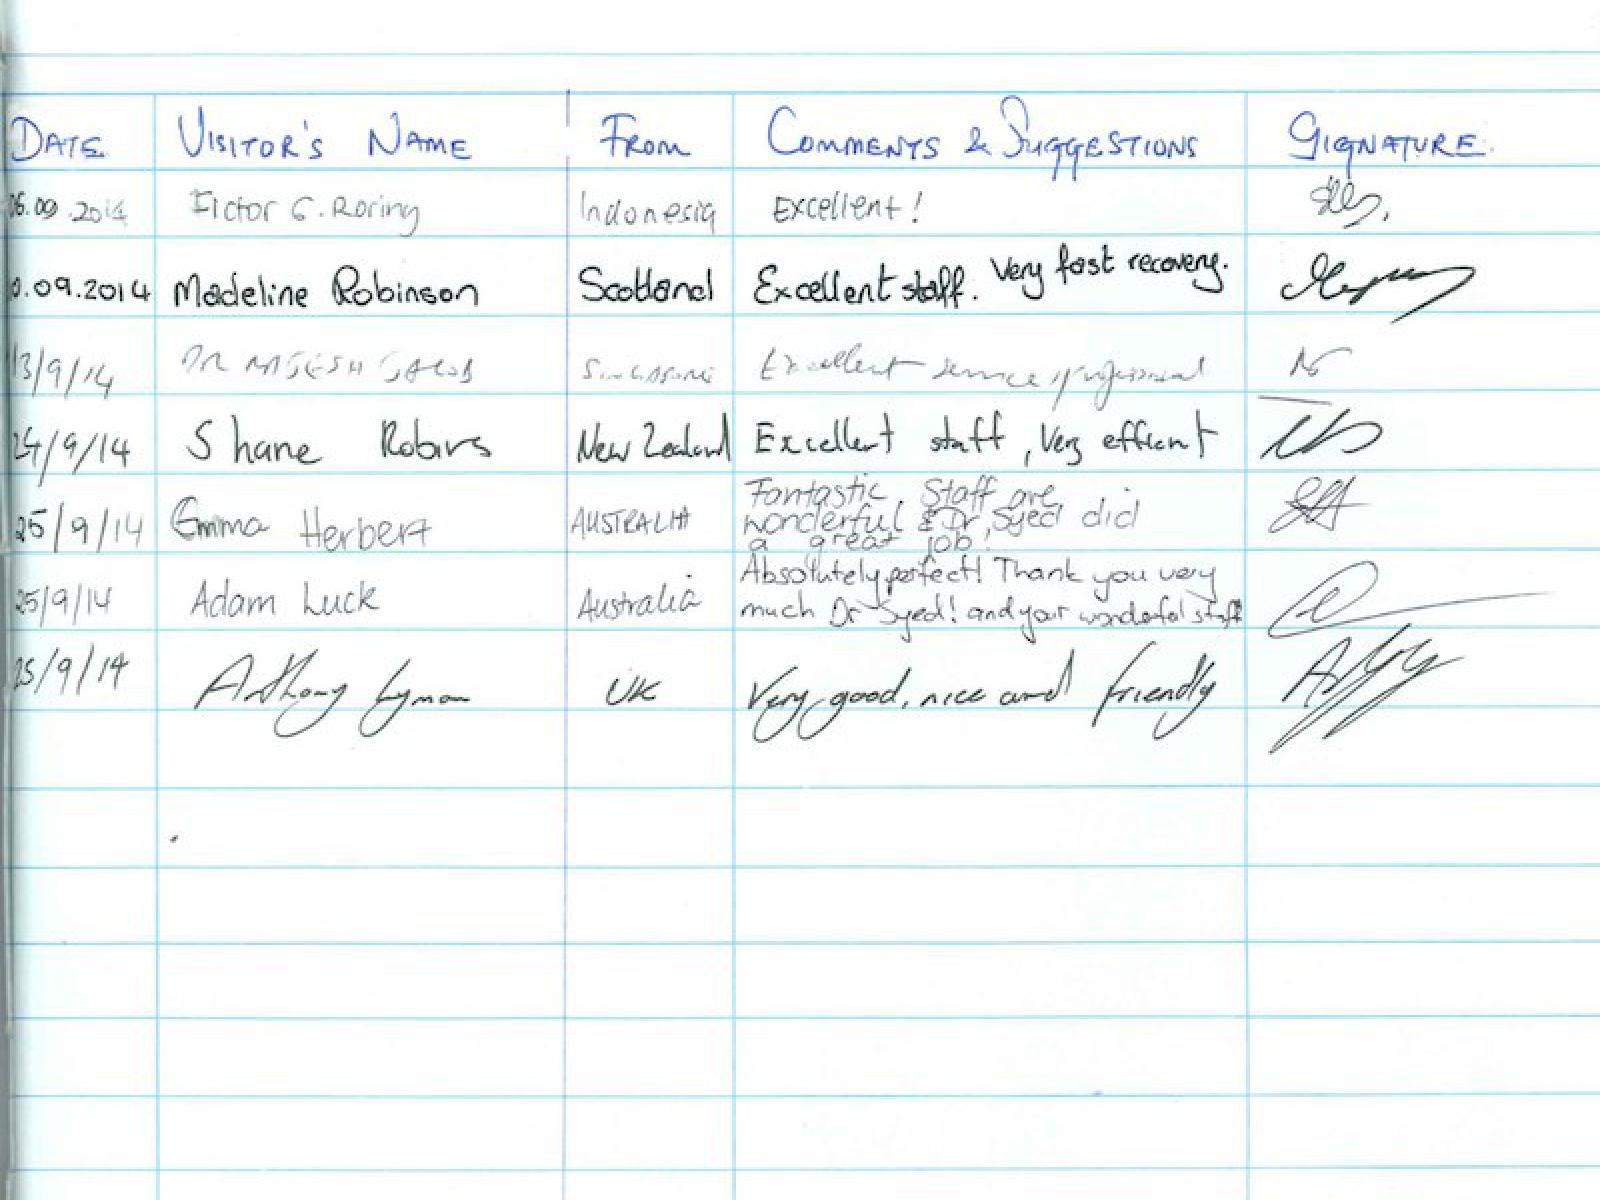 DATE VISITOR'S NAME FROM COMMENTS & SUGGESTIONS GIGNATURE.
06.09.2014 Fictor G. Roring Indonesia Excellent!
.09.2014 Madeline Robinson Scotland Excellent staff. Very fast recovery.
13/9/14 DR Excellent service, professional
24/9/14 Shane Robins New Zealand Excellent staff, Very efficent
25/9/14 Emma Herbert AUSTRALIA Fantastic. Staff are
wonderful & Dr Syed did
a great job!
25/9/14 Adam Luck Australia Absolutely perfect! Thank you very
much Dr Syed! and your wonderful staff
25/9/14 Anthony Lyman UK Very good, nice and friendly